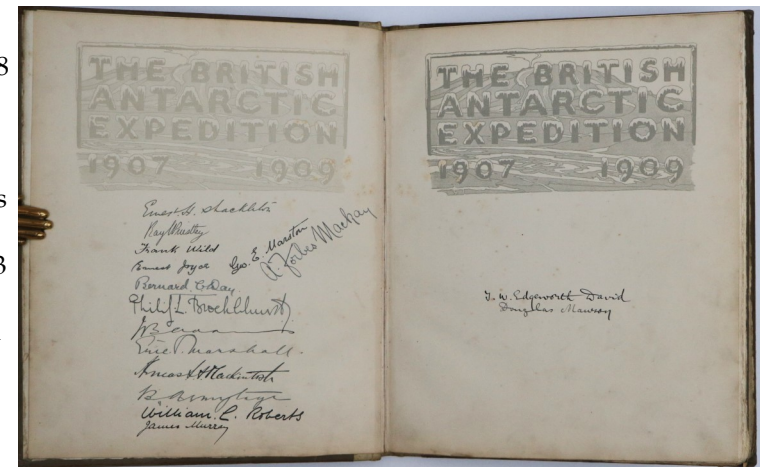 8
s
3
THE BRITISH
ANTARCTIC
EXPEDITION
1907 1909
Ernest H. Shackleton
Raymond Priestley
Frank Wild
Ernest Joyce Geo. E. Marston
A. Forbes Mackay
Bernard C. Day
Philip L. Brocklehurst
Eric P. Marshall.
Aeneas A. Mackintosh
B Armytage
William. C. Roberts
James Murray
THE BRITISH
ANTARCTIC
EXPEDITION
1907 1909
T. W. Edgeworth David
Douglas Mawson